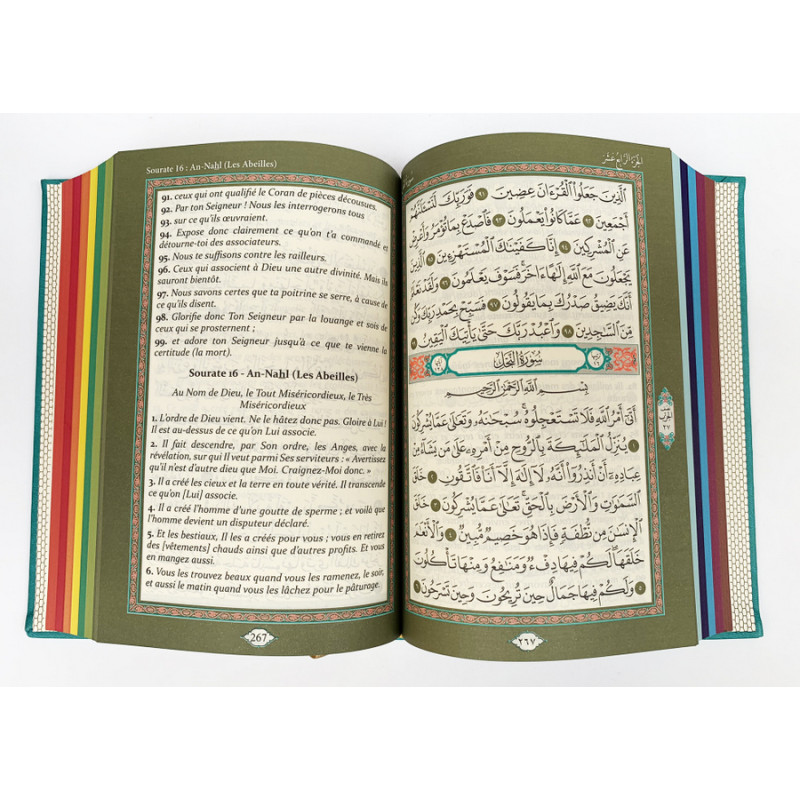 Sourate 16 : An-Naḥl (Les Abeilles)
91. ceux qui ont qualifié le Coran de pièces décousues.
92. Par ton Seigneur ! Nous les interrogerons tous
93. sur ce qu'ils œuvraient.
94. Expose donc clairement ce qu'on t'a commandé et
détourne-toi des associateurs.
95. Nous te suffisons contre les railleurs.
96. Ceux qui associent à Dieu une autre divinité. Mais ils
sauront bientôt.
97. Nous savons certes que ta poitrine se serre, à cause
de ce qu'ils disent.
98. Glorifie donc Ton Seigneur par la louange et sois de
ceux qui se prosternent ;
99. et adore ton Seigneur jusqu'à ce que te vienne la
certitude (la mort).
Sourate 16 - An-Naḥl (Les Abeilles)
Au Nom de Dieu, le Tout Miséricordieux, le Très
Miséricordieux
1. L'ordre de Dieu vient. Ne le hâtez donc pas. Gloire à Lui !
Il est au-dessus de ce qu'on Lui associe.
2. Il fait descendre, par Son ordre, les Anges, avec la
révélation, sur qui Il veut parmi Ses serviteurs : « Avertissez
qu'il n'est d'autre dieu que Moi. Craignez-Moi donc. »
3. Il a créé les cieux et la terre en toute vérité. Il transcende
ce qu'on [Lui] associe.
4. Il a créé l'homme d'une goutte de sperme ; et voilà que
l'homme devient un disputeur déclaré.
5. Et les bestiaux, Il les a créés pour vous ; vous en retirez
des [vêtements] chauds ainsi que d'autres profits. Et vous
en mangez aussi.
6. Vous les trouvez beaux quand vous les ramenez, le soir,
et aussi le matin quand vous les lâchez pour le pâturage.
267
الجزء الرابع عشر
الَّذِينَ جَعَلُوا الْقُرْءَانَ عِضِينَ ٩١ فَوَرَبِّكَ لَنَسْـَٔلَنَّهُمْ
أَجْمَعِينَ ٩٢ عَمَّا كَانُوا يَعْمَلُونَ ٩٣ فَاصْدَعْ بِمَا تُؤْمَرُ وَأَعْرِضْ
عَنِ الْمُشْرِكِينَ ٩٤ إِنَّا كَفَيْنَاكَ الْمُسْتَهْزِءِينَ ٩٥ الَّذِينَ
يَجْعَلُونَ مَعَ اللَّهِ إِلَٰهًا ءَاخَرَ فَسَوْفَ يَعْلَمُونَ ٩٦ وَلَقَدْ نَعْلَمُ
أَنَّكَ يَضِيقُ صَدْرُكَ بِمَا يَقُولُونَ ٩٧ فَسَبِّحْ بِحَمْدِ رَبِّكَ وَكُن
مِّنَ السَّاجِدِينَ ٩٨ وَاعْبُدْ رَبَّكَ حَتَّىٰ يَأْتِيَكَ الْيَقِينُ
سُورَةُ النَّحْلِ
بِسْمِ اللَّهِ الرَّحْمَٰنِ الرَّحِيمِ
أَتَىٰ أَمْرُ اللَّهِ فَلَا تَسْتَعْجِلُوهُ سُبْحَانَهُ وَتَعَالَىٰ عَمَّا يُشْرِكُونَ
١ يُنَزِّلُ الْمَلَائِكَةَ بِالرُّوحِ مِنْ أَمْرِهِ عَلَىٰ مَن يَشَاءُ مِنْ
عِبَادِهِ أَنْ أَنذِرُوا أَنَّهُ لَا إِلَٰهَ إِلَّا أَنَا فَاتَّقُونِ ٢ خَلَقَ
السَّمَاوَاتِ وَالْأَرْضَ بِالْحَقِّ تَعَالَىٰ عَمَّا يُشْرِكُونَ ٣ خَلَقَ
الْإِنسَانَ مِن نُّطْفَةٍ فَإِذَا هُوَ خَصِيمٌ مُّبِينٌ ٤ وَالْأَنْعَامَ
خَلَقَهَا لَكُمْ فِيهَا دِفْءٌ وَمَنَافِعُ وَمِنْهَا تَأْكُلُونَ
٥ وَلَكُمْ فِيهَا جَمَالٌ حِينَ تُرِيحُونَ وَحِينَ تَسْرَحُونَ ٦
٢٦٧